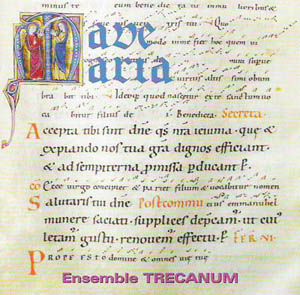 minus te cum bene dic ta tu in mulieribus &
ave
modo inne fiet hoc quem ui
maria
Ideoq; quod nascetur ex te sanctum uo
ca bitur filius de i Benedicta Secreta
Accepta tibi sint dne qs nra ieiunia. que &
expiando nos tua gra dignos efficiant
& ad sempiterna pmissa pducant p.
co Ecce uirgo concipiet & pariet filium & uocabitur nomen
Salutaris tui dne Postcommu eius emmanuhel
munere saciati supplices depcam. ut cui
letam. gustu. renouem effectu. p
FER NI
P ROPE ESTO domine & omnes uie tue
Ensemble TRECANUM